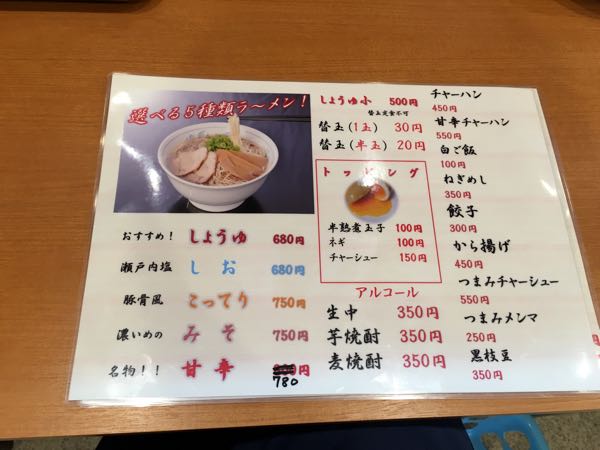 選べる5種類ラ～メン！
おすすめ！ しょうゆ 680円
瀬戸内塩 しお 680円
豚骨風 こってり 750円
濃いめの みそ 750円
名物！！ 甘辛 円
780
しょうゆ小 500円
替玉定食不可
替玉(1玉) 30円
替玉(半玉) 20円
トッピング
半熟煮玉子 100円
ネギ 100円
チャーシュー 150円
アルコール
生中 350円
芋焼酎 350円
麦焼酎 350円
チャーハン
450円
甘辛チャーハン
550円
白ご飯
100円
ねぎめし
350円
餃子
300円
から揚げ
450円
つまみチャーシュー
550円
つまみメンマ
250円
黒枝豆
350円